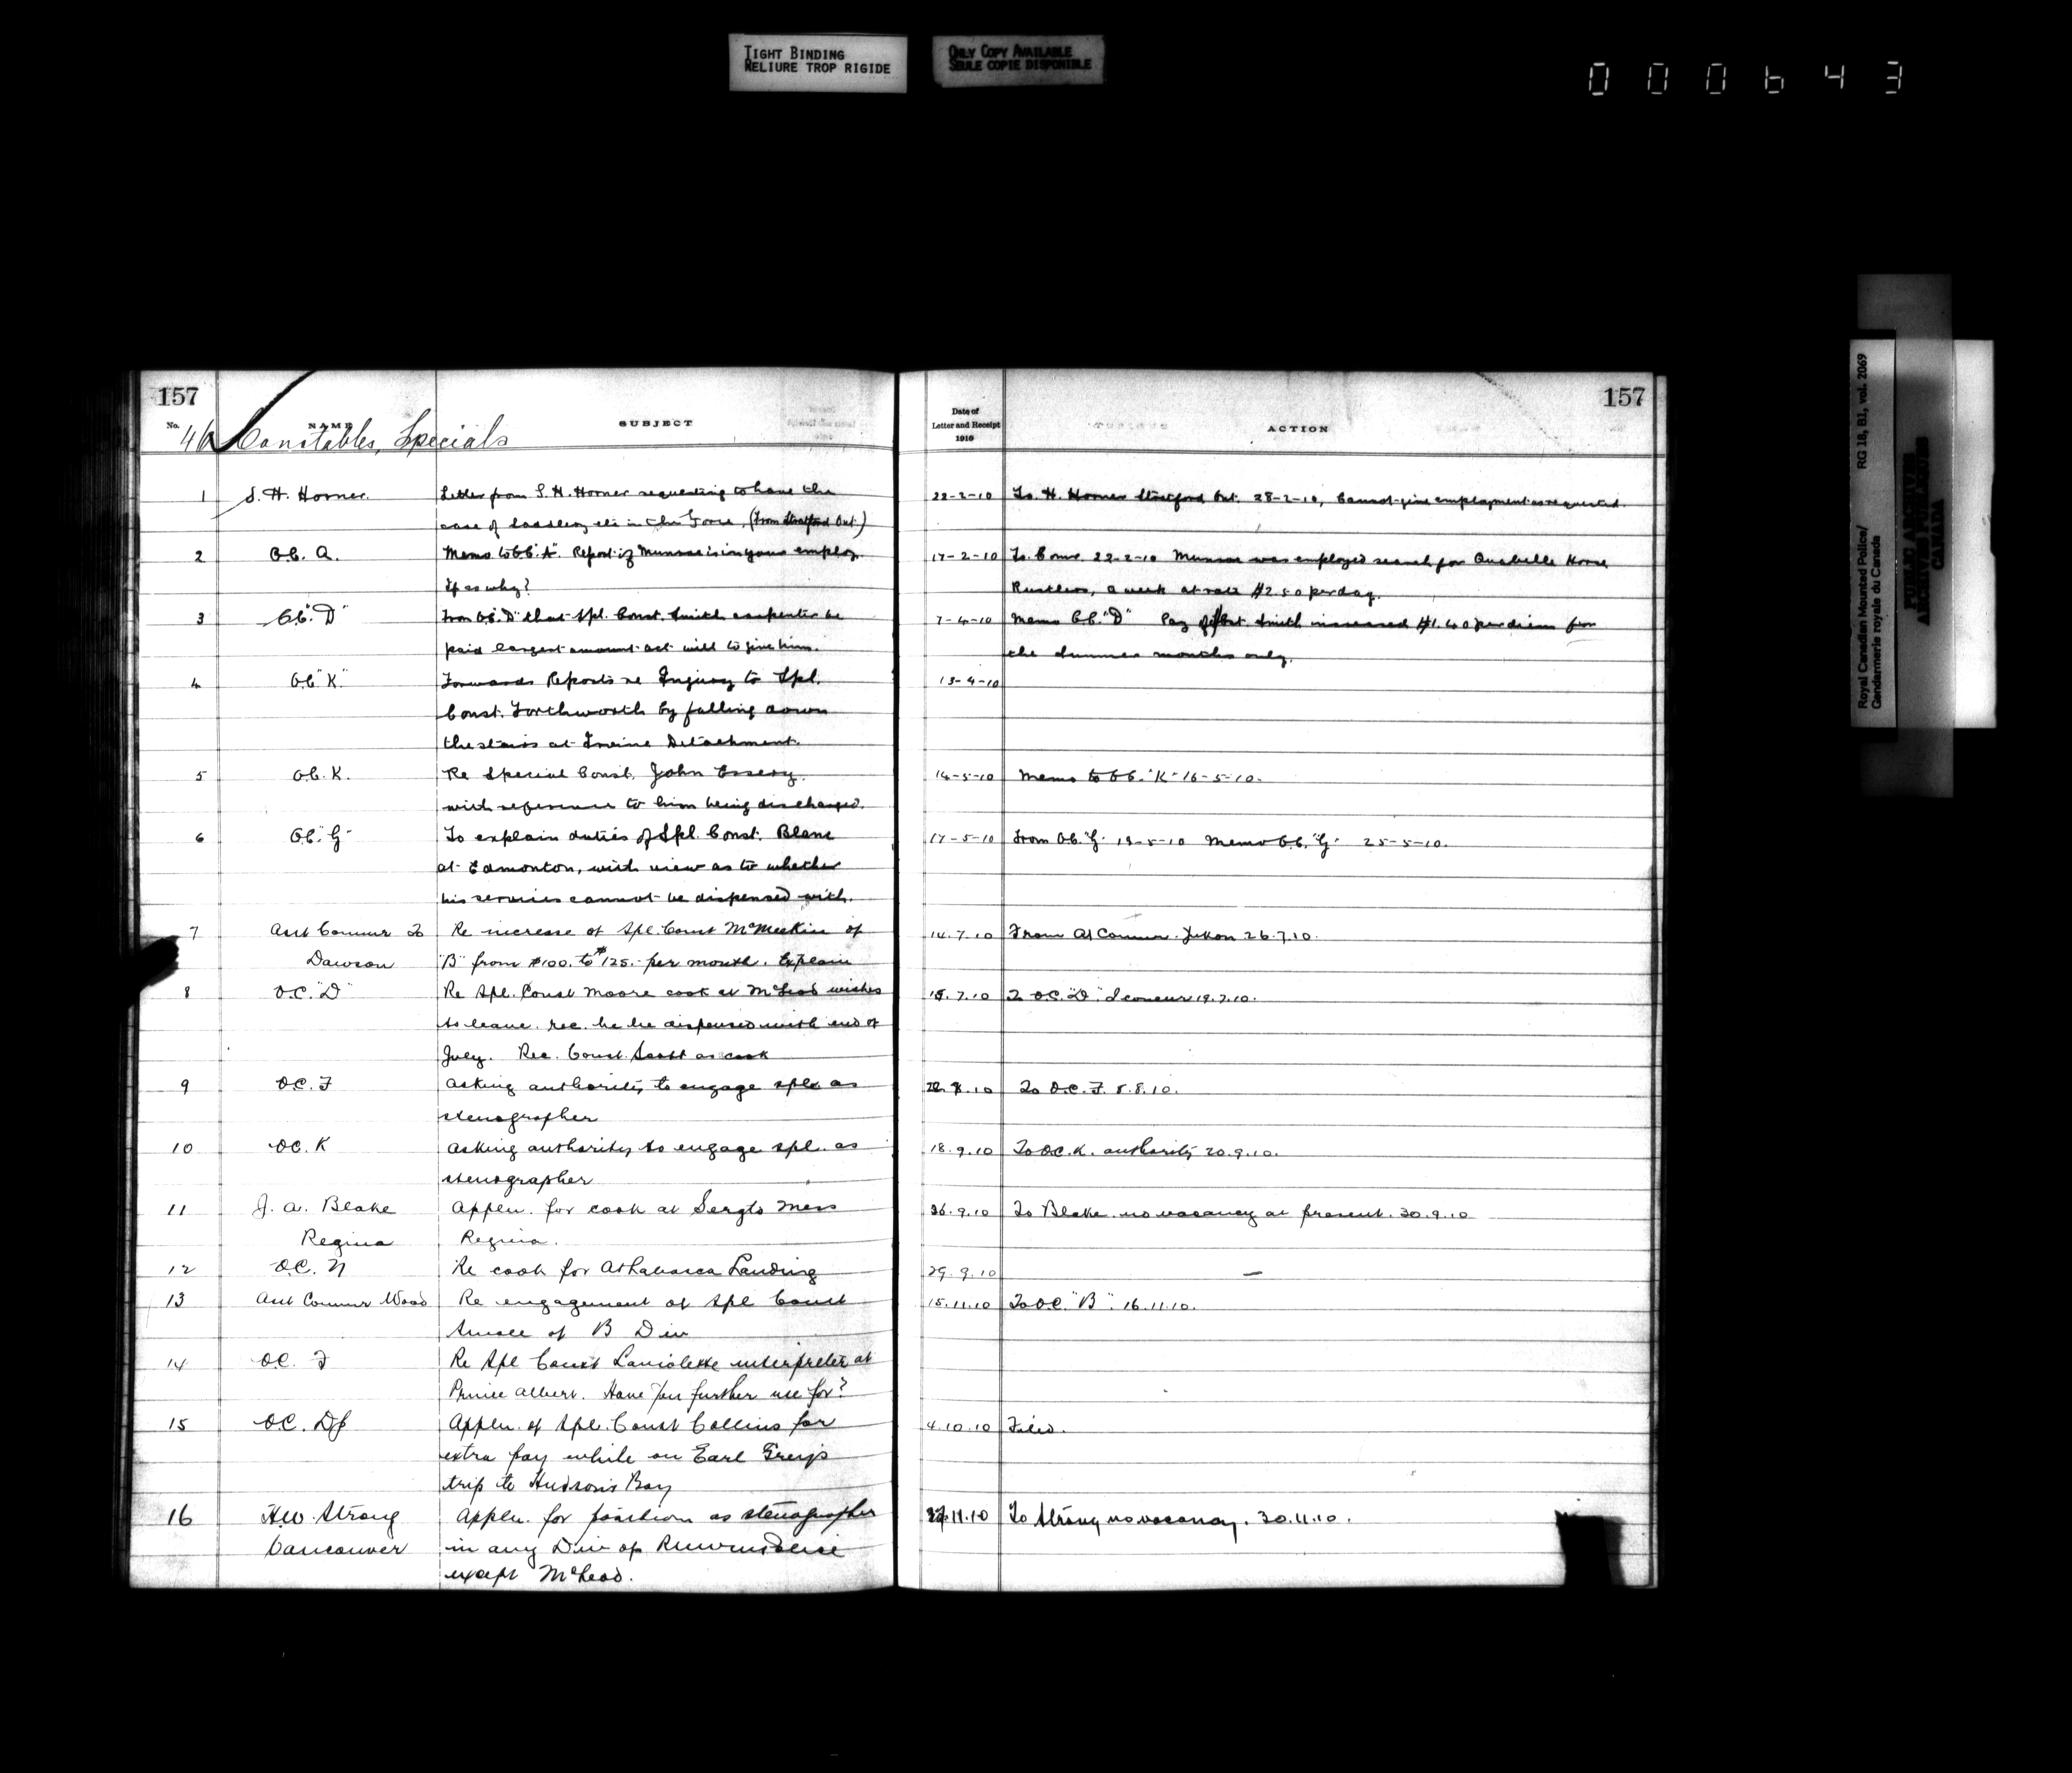 TIGHT BINDING
RELIURE TROP RIGIDE
ONLY COPY AVAILABLE
SEULE COPIE DISPONIBLE
000643
157
157
No. NAME SUBJECT
Date of
Letter and Receipt
1910
ACTION
Constables, Specials
1 S. H. Horner. Letter from S. H. Horner requesting to have the 22-2-10 To. H. Horner Stratford Ont. 28-2-10, Cannot give employment as requested.
care of saddlery etc in the Force, (From Stratford Ont.)
2 O.C. A. Memo to O.C. "A". Report if Munroe is in your employ. 17-2-10 To. Comr. 22-2-10 Munroe was employed search for Horse
If so why? Rustlers, a week at rate $2.50 per day.
3 O.C. "D" From O.C. "D" that Spl. Const. Smith carpenter be 7-4-10 Memo O.C. "D" Pay of Smith increased $1.40 per diem for
paid largest amount act will to give him. the summer months only.
4 O.C. "K" Forwards Reports re Injury to Spl. 13-4-10
Const. Forthworth by falling down
the stairs at Irvine Detachment.
5 O.C. K. Re Special Const. John Essery 14-5-10 Memo to O.C. "K" 16-5-10.
with reference to him being discharged.
6 O.C. "G" To explain duties of Spl. Const. Blanc 17-5-10 From O.C. "G" 19-5-10 Memo O.C. "G" 25-5-10.
at Edmonton, with view as to whether
his services cannot be dispensed with.
7 Asst Commr Re increase of Spl. Const McMeekin of 14.7.10 From Commr. Yukon 26.7.10.
Dawson "B" from $100. to $125. per month. Explain
8 O.C. "D" Re Spl. Const Moore cook at McLeod wishes 15.7.10 To O.C. "D" I concur 19.7.10.
to leave. rec. he be dispensed with end of
July. Rec. Const. Scott as cook
9 O.C. F Asking authority to engage spl. as To O.C. F. 5.8.10.
stenographer
10 O.C. K Asking authority to engage spl. as 18.9.10 To O.C. K. authority 20.9.10.
stenographer
11 J. A. Blake Appln. for cook at Sergts Mess 26.9.10 To Blake no vacancy at present. 30.9.10
Regina Regina.
12 O.C. N Re cook for Athabasca Landing 29.9.10 —
13 Asst Commr Wood Re engagement of Spl Const 15.11.10 To O.C. "B". 16.11.10.
of B Div
14 O.C. F Re Spl Const Laviolette interpreter at
Prince Albert. Have you further use for?
15 O.C. Appln. of Spl. Const Collins for 4.10.10 Filed.
extra pay while on Earl Grey's
trip to Hudson's Bay
16 H.W. Strong Appln. for position as stenographer 27.11.10 To Strong no vacancy. 30.11.10.
Vancouver in any Div of
except McLeod.
Royal Canadian Mounted Police/ RG 18, B1, vol. 2069
Gendarmerie royale du Canada
PUBLIC ARCHIVES
ARCHIVES PUBLIQUES
CANADA